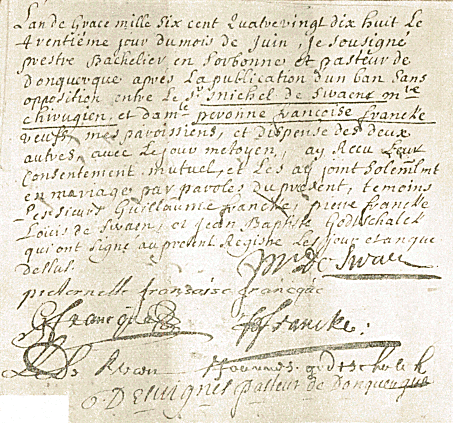 Lan de Grace mille six cent Quatrevingt Dix huit Le
trentiéme jour du mois de Juin, je sousigné
prestre Bachelier en Sorbonne et pasteur de
Donquerque apres La publication d'un ban sans
opposition entre Le Sr. Michel de Swaen mre
chirugien, et damle peronne francoise francke
veufs, mes paroissiens, et dispense des deux
autres, avec Le jour metoyen, ay Receu Leur
Consentement mutuel, et Les ay joint Solemlmt
en mariage par paroles du present, temoins
Les sieurs Guillaume francke, pieve francke
Louis de Swaen, et Jean Baptiste Godtschalck
qui ont signé au present Registre Les jour et an que
dessus.
M De Swaen
pieternelle fransoise francque
francque
francke
Swaen Joannes godtschalck
Desvignes pasteur de Donquerque